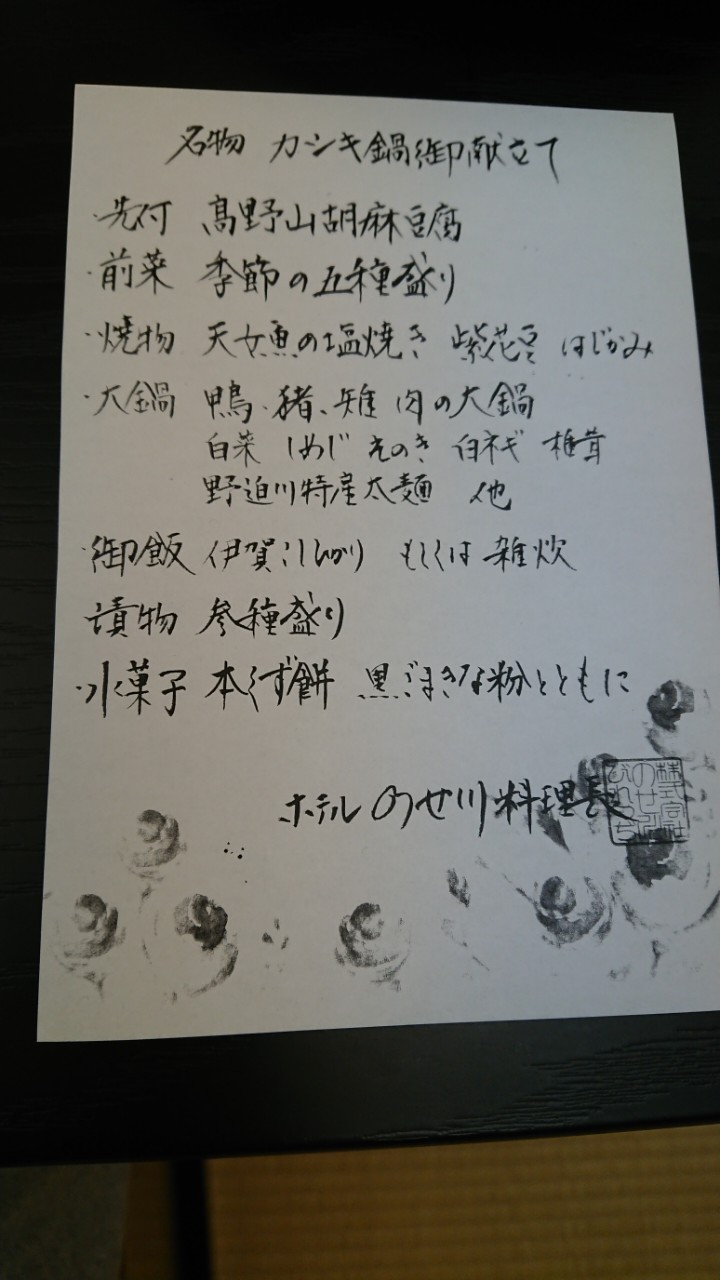 名物 カシキ鍋御献立て
・先付 髙野山胡麻豆腐
・前菜 季節の五種盛り
・焼物 天女魚の塩焼き 紫花豆 はじかみ
・大鍋 鴨、猪、雉 肉の大鍋
白菜 しめじ えのき 白ネギ 椎茸
野迫川特産太麺 他
・御飯 伊賀こしひかり もしくは 雑炊
漬物 参種盛り
・水菓子 本くず餅 黒ごまきな粉とともに
ホテル のせ川料理長